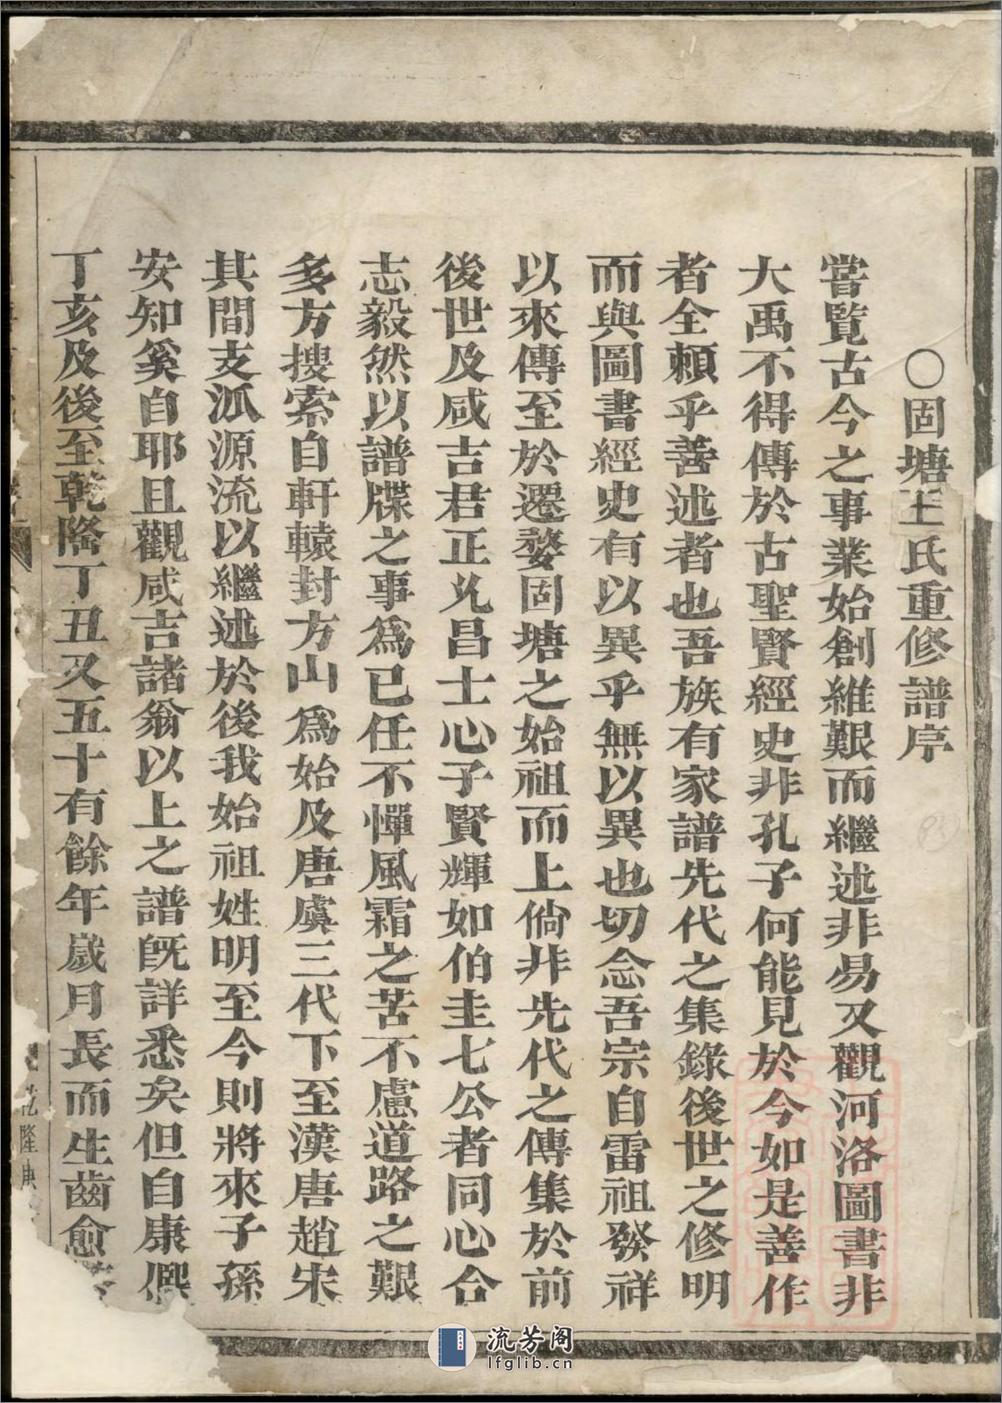 〇固塘王氏重修譜序
嘗覽古今之事業始創維艱而繼述非易又觀河洛圖書非
大禹不得傳於古聖賢經史非孔子何能見於今如是善作
者全賴乎善述者也吾族有家譜先代之集錄後世之修明
而與圖書經史有以異乎無以異也切念吾宗自雷祖發祥
以來傳至於遷婺固塘之始祖而上倘非先代之傳集於前
後世及咸吉君正兆昌士心子賢輝如伯圭七公者同心合
志毅然以譜牒之事為已任不憚風霜之苦不慮道路之艱
多方搜索自軒轅封方山為始及唐虞三代下至漢唐趙宋
其間支泒源流以繼述於後我始祖姓明至今則將來子孫
安知奚自耶且觀咸吉諸翁以上之譜旣詳悉矣但自康熈
丁亥及後至乾隆丁丑又五十有餘年歲月長而生齒愈
乾隆
流芳阁
lfglib.cn